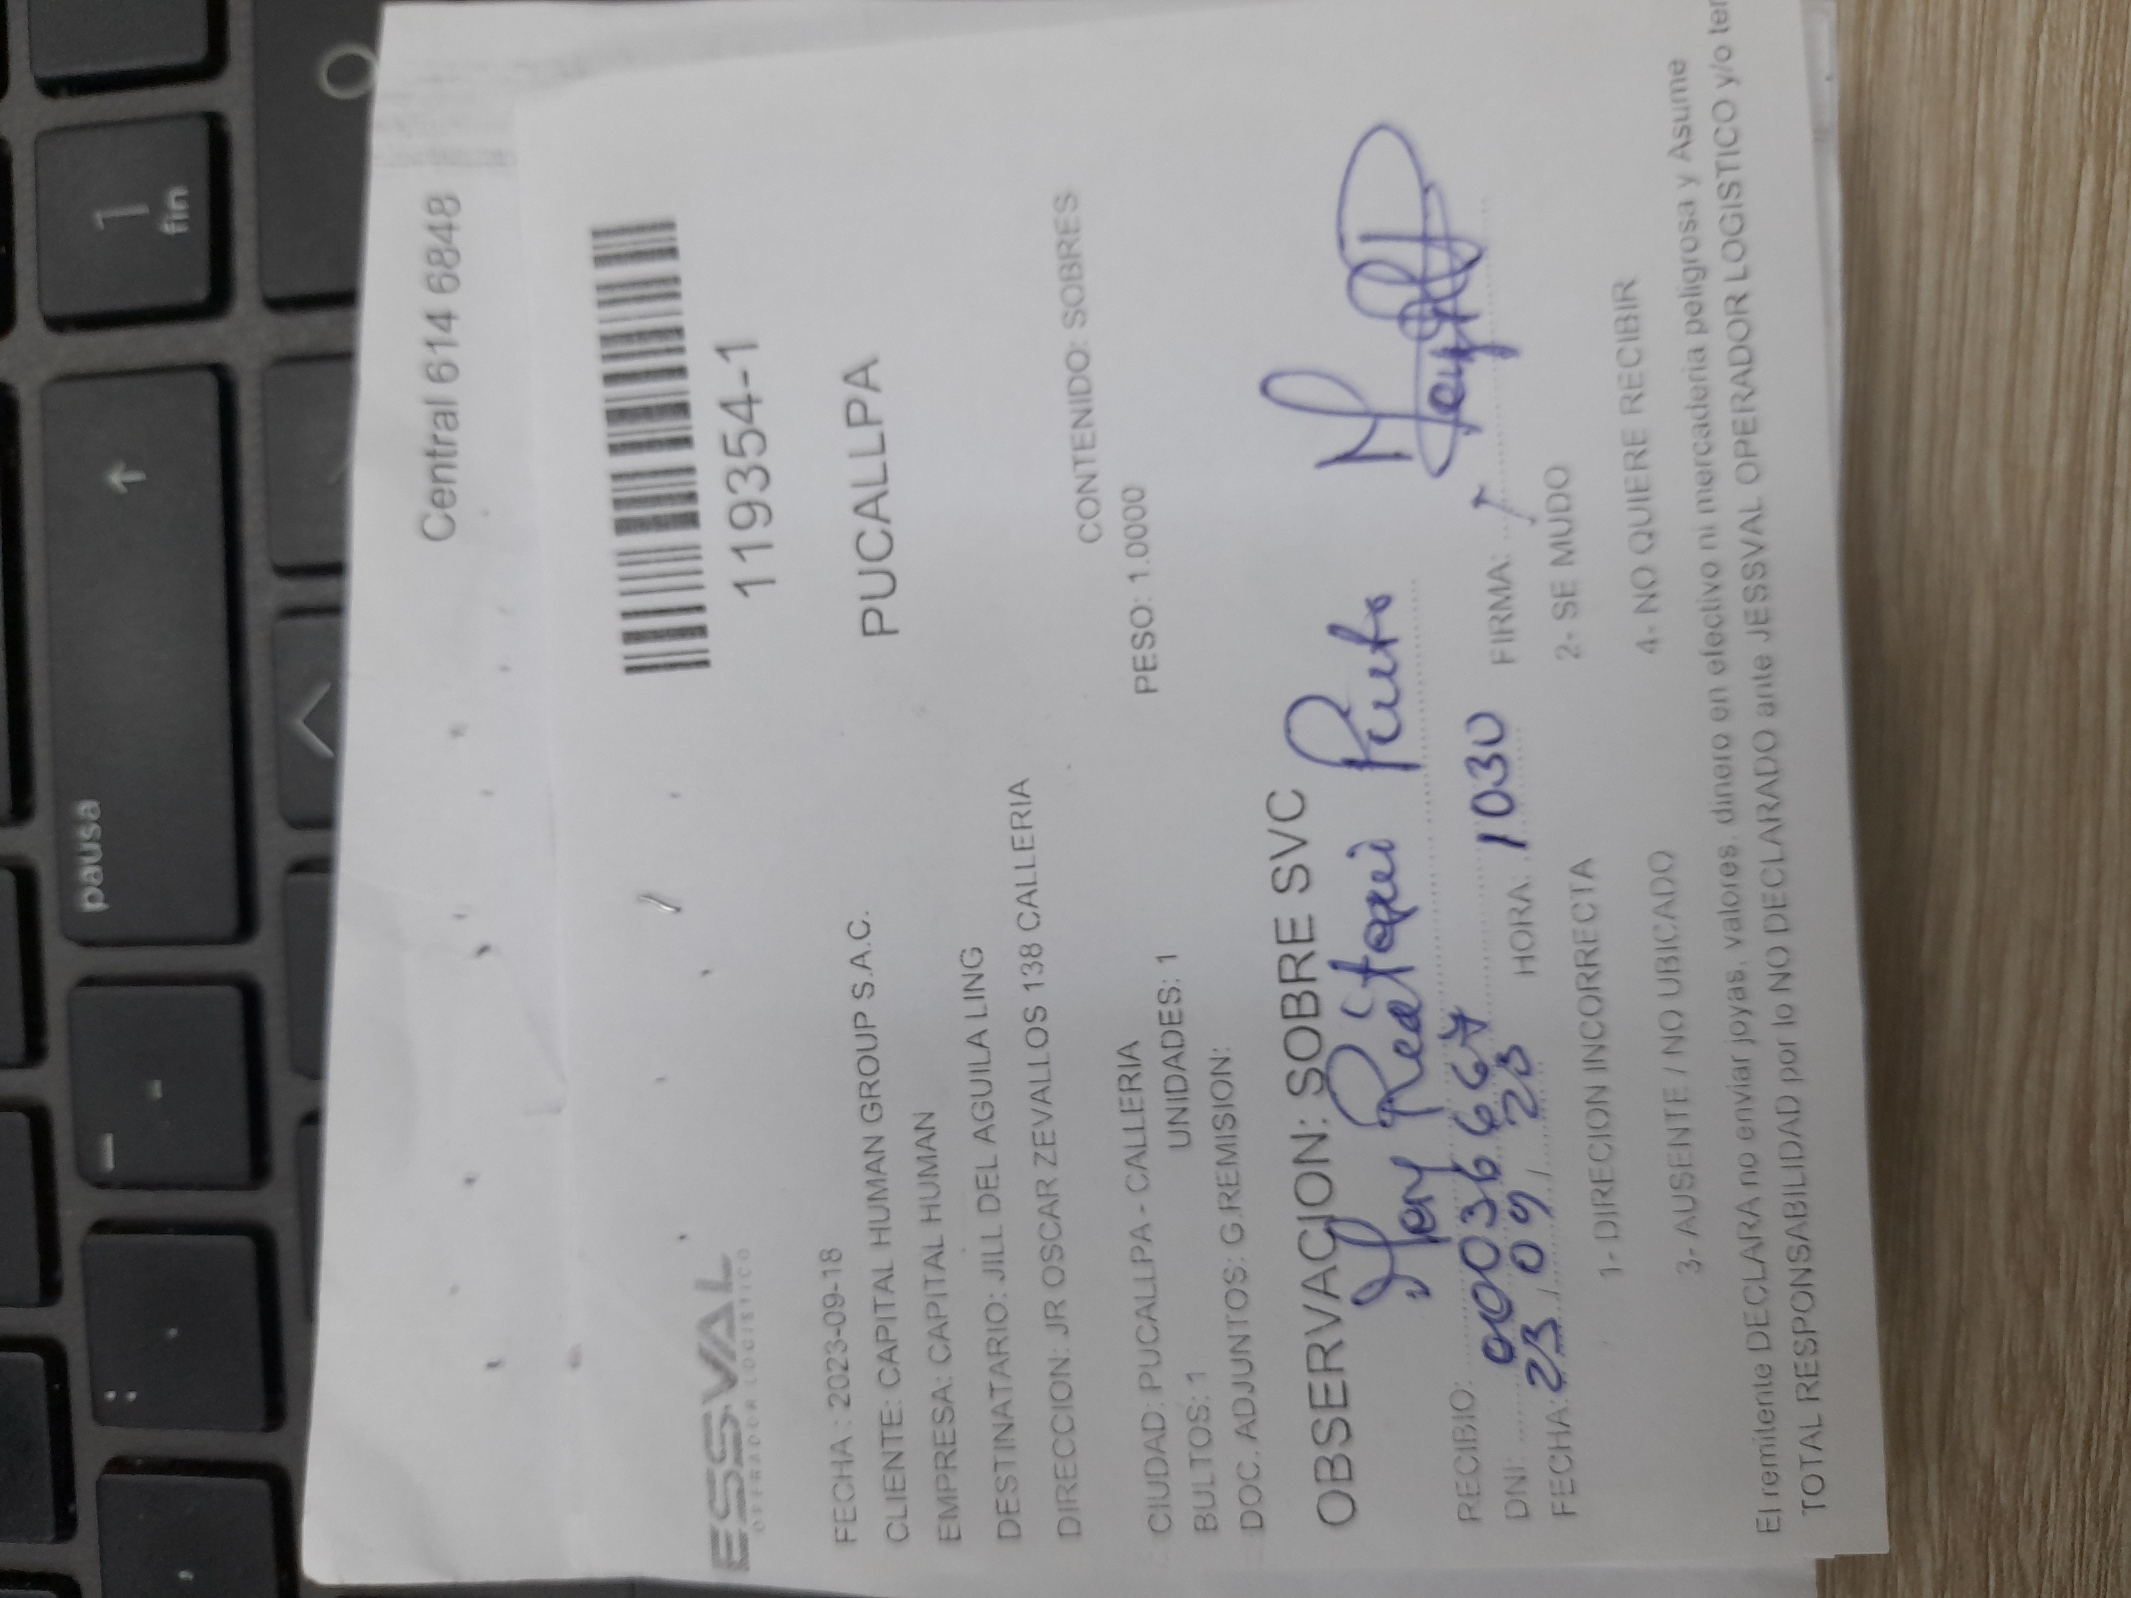 pausa
1
fin
Central 614 6848
ESSVAL
OPERADOR LOGISTICO
119354-1
FECHA : 2023-09-18
CLIENTE: CAPITAL HUMAN GROUP S.A.C.
PUCALLPA
EMPRESA: CAPITAL HUMAN
DESTINATARIO: JILL DEL AGUILA LING
DIRECCION: JR OSCAR ZEVALLOS 138 CALLERIA
CONTENIDO: SOBRES
CIUDAD: PUCALLPA - CALLERIA
PESO: 1.0000
BULTOS: 1 UNIDADES: 1
DOC. ADJUNTOS: G.REMISION:
OBSERVACION: SOBRE SVC
RECIBIO: Mery Reátegui Pinto
DNI: 00036667
FECHA: 23 / 09 / 23 HORA: 1030 FIRMA:
1- DIRECION INCORRECTA 2- SE MUDO
3- AUSENTE / NO UBICADO 4- NO QUIERE RECIBIR
El remitente DECLARA no enviar joyas, valores, dinero en efectivo ni mercaderia peligrosa y Asume
TOTAL RESPONSABILIDAD por lo NO DECLARADO ante JESSVAL OPERADOR LOGISTICO y/o ter